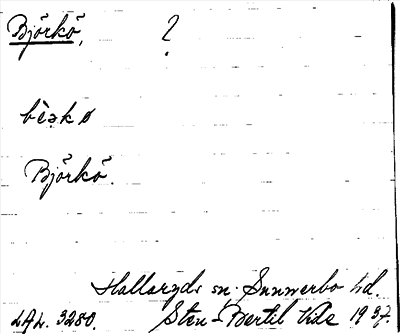 Björkö, ?
bèəkø
Björkö.
Hallaryds sn. Sunnerbo hd.
LAL. 3280. Sten-Bertil Vide 1937.